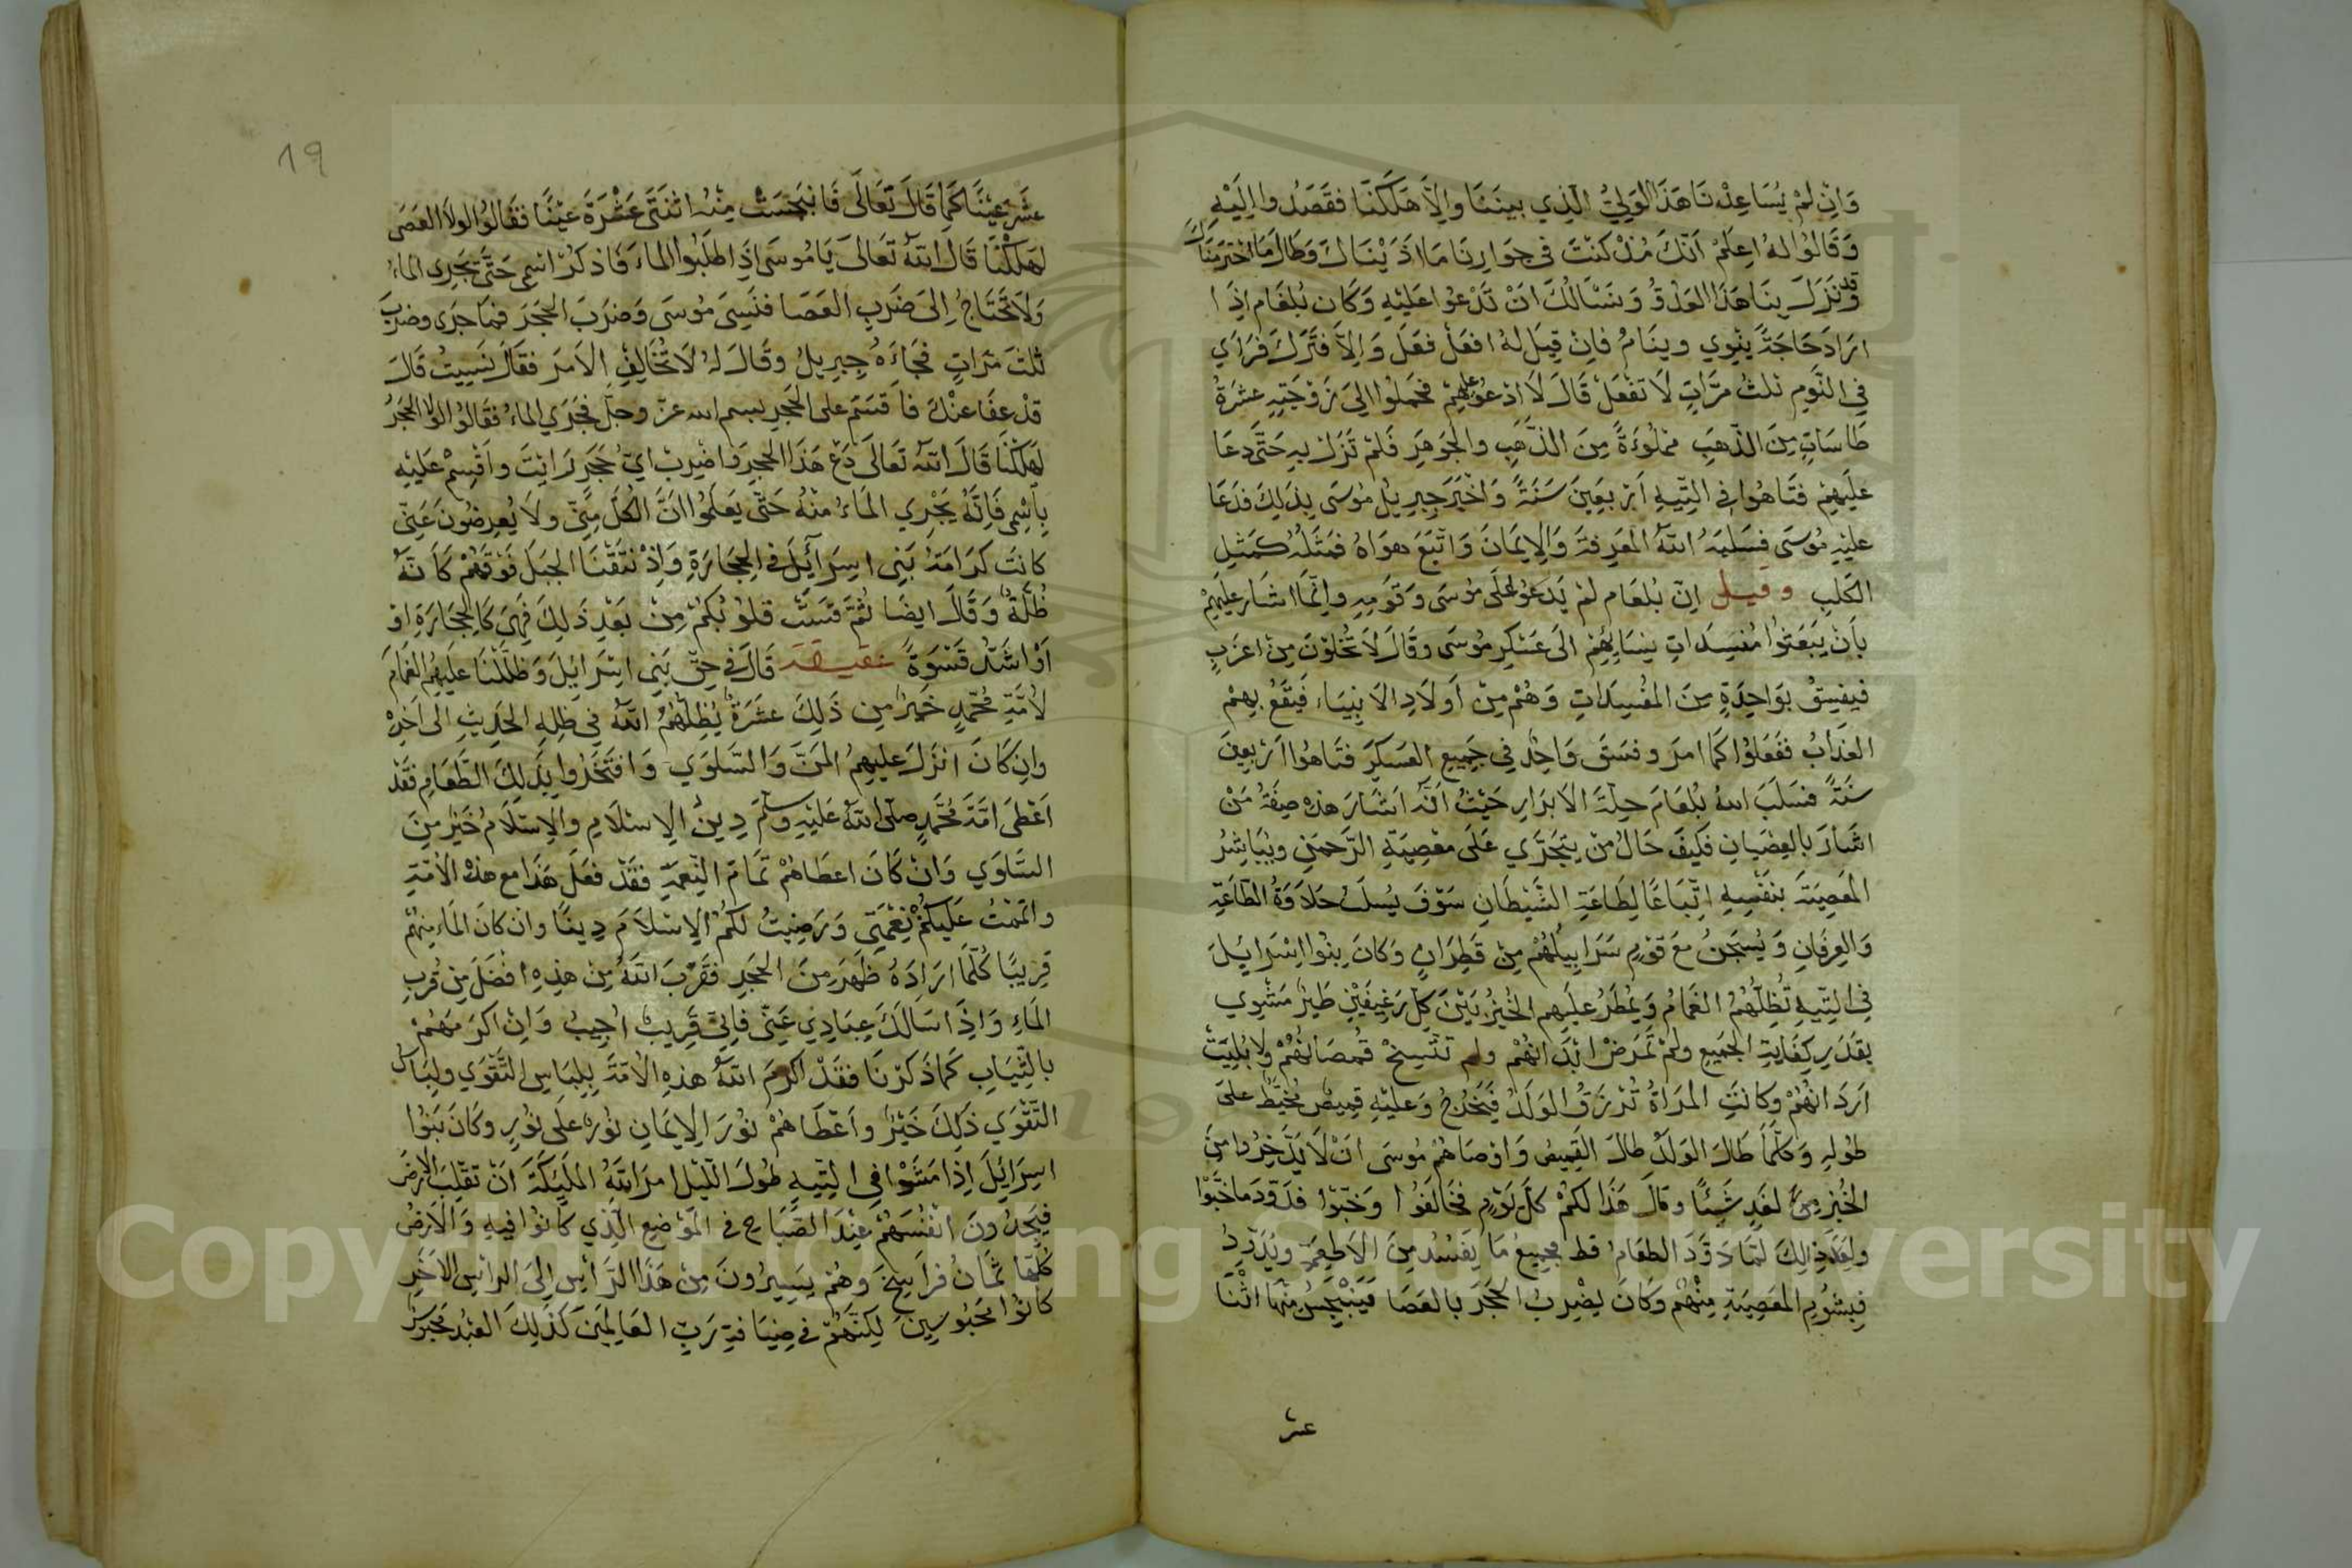 وَاِنْ لَمْ يُسَاعِدْنَا هَذَا الوَلِيُّ الَّذِي بَينَنَا وَاِلَّا هَلَكْنَا فَقَصَدُوا اِلَيْهِ
وَقَالُوُا لهُ اِعلَمْ اَنّكَ مُنْذُ كنْتَ فِى جِوَارِنَا مَا اَذَيْنَاكَ وَطَالَ مَا احْتَرمَنَاكَ
وَقد نَزَلَ بِنَا هَذَا العَدُوُّ وَنسَالُكَ اَنْ تَدْعُوا عَلَيْهِ وَكَان بُلعَام اذَا
ارَادَ حَاجَةً يَنْوِي وينَامُ فَاِنْ قِيلَ لهُ افعَلْ فعَلَ وَاِلَّا فَتَرَكَ فَرَاي
فِي النَّومِ ثلثُ مَرَّاتٍ لَا تَفْعَلْ قَالَ لَا ادْعُو عليهِمْ فَحَمَلوُا اِلىَ زَوْجَتِهِ عشرَةُ
طَاسَاتٍ مِنَ الذّهَبِ مَملُوْءَةً مِنَ الذّهَبِ وَالجَوهَرِ فَلَمْ تَزَلْ بِهِ حَتّى دَعَا
عَلَيهِمْ فَتَاهُوا فِي التّيهِ اَرْبَعِينَ سَنَةً وَاَخْبَرَ جِبرِيلُ مُوسَى بِذلِكَ فَدَعَا
عليْهِ مُوسَى فسَلبَهُ اللهُ المَعرِفةَ وَالاِيمَانَ وَاتّبَعَ هوَاهُ فمَثَلُهُ كمَثَلِ
الكَلبِ وقيل اِنّ بُلعَام لمْ يَدعُوْ عَلَى مُوسَى وَقَومِهِ وانّمَا اشَارَ عليهِمْ
بِاَنْ يَبعَثوُا مُفسِدَاتِ نِسَايِهِمْ الىَ عَسْكرِ مُوسَى وقَالَ لاَ تخْلوْنَ مِنْ اعزَبٍ
فَيفسِقُ بوَاحِدَةٍ مِنَ المفْسِدَاتِ وَهُمْ مِنْ اَولَادِ الاَنبِيَاء فَيقَعُ بِهِمْ
العَذَابُ ففَعَلوُا كمَا امرَ وفسَقَ وَاحِدٌ فِي جَمِيعِ العَسكَرِ فتَاهُوا اَرْبعِينَ
سَنةً فسَلبَ اللهُ بُلعَامَ حِلةَ الاَبرَارِ حَيْثُ اَنّهُ اشَارَ هذهِ صِفَةُ مَنْ
اشَارَ بِالعِصْيَانِ فكَيفَ حَالُ مَنْ يتَجَرّي عَلَى مَعْصِيَةِ الرّحمَنِ ويُبَاشِرُ
المعَصِيَةَ بنَفْسِهِ اتِّبَاعًا لِطَاعَةِ الشّيْطَانِ سَوْفَ يُسلَبُ حَلاَوَةُ الطّاعَةِ
وَالعِرفَانِ وَيُسجَنُ مَعَ قَوْمٍ سَرَابِيلُهُمْ مِنْ قَطِرَانٍ وَكانَ بنوُا اسْرَايِلَ
فِي التّيهِ تُظِلّهُمُ الغَمَامُ وَيُمْطَرُ علَيهِم الخُبْزُ بَيْنَ كلِّ رَغِيفَيْنِ طَيْرُ مَشْوِي
بقَدَرِ كِفَايةِ الجَمِيعِ ولمْ تمَرَضْ ابْدَانُهُمْ ولم تَتّسِخْ قُمصَانُهُمْ ولا بُلِيَتْ
اَردَانُهُمْ وكَانتِ المَرَاةُ تُرْزَقُ الوَلَدُ فَيَخْرُجُ وَعليْهِ قَمِيصٌ مُخيَّطٌ عَلىَ
طُولِهِ وَكلّمَا طَالَ الوَلَدُ طَالَ القَمِيصُ وَاوْصَاهُمْ مُوسَى انْ لَا يَدّخِرُوا مِنَ
الخُبْزِ مِن لغَدٍ شَيئًا وقَالَ هَذَا لكُمْ كلّ يَوْمٍ فخَالَفوُا وَخَبّوْا فدَوّدَ مَا خَبّوْا
ولَعِدَ ذلِكَ لَمَّا دَوَّدَ الطعَامُ قط فجمِيعُ مَا يَفسُدُ مِنَ الاَطعِمَةِ ويُدَوِّدُ
فبِشُومِ المعَصِيَةِ مِنْهُمْ وكَانَ يضْرِبُ الحَجَرَ بِالعَصَا فَيَنْبَجِسُ مِنْهَا اثْنَتَا
عشر
19
عشَرَ عيْنًا كمَا قَالَ تَعَالَى فَانْبَجَسَتْ مِنْهُ اثنَتَى عَشْرَةَ عَيْنًا فقَالُوُا لولَا العَصَى
لهَلَكْنَا قَالَ اللهُ تَعَالىَ يَا مُوسَى اذَا طلَبُوا الماءَ فَاذكُرْ اسْمِى حَتَّى يَجَرِى الماءُ
وَلَا تَحْتَاجُ اِلىَ ضَربِ العَصَا فنَسِىَ مُوسَى وَضرَبَ الحَجَرَ فمَا جَرَى وضرَبَ
ثلثَ مَرّاتٍ فجَاءَهُ جِبرِيلُ وقَالَ لهُ لَا تخَالِفِ الاَمرَ فقَالَ نَسِيتُ قَالَ
قدْ عفَا عنْكَ فاَقسَمَ على الحَجرِ بسم الله عزّ وجلّ فجَرَي الماءُ فقَالوُا لولا الحَجَرُ
لهَلَكْنَا قَالَ اللهُ تَعَالَى دَعْ هَذَا الحَجرِ وَاضرِبْ ايّ حَجَرٍ ارَانْتَ واقسِمْ عَليْهِ
بِاسْمِى فَاِنّهُ يَجْرِي المَاءُ مِنْهُ حَتّى يَعلَمُوا انّ الكُلّ مِنّى ولَا يُعرِضُونَ عَنّى
كانَت كرَامَةُ بَنِى اسرَآئِلَ فى الحِجَارَةِ وَاِذْ نتَقْنَا الجبَلَ فَوْقَهُمْ كاَنّهُ
ظُلّةٌ وَقَالَ ايضًا ثُمَّ قسَتْ قلوُبُكمْ مِنْ بَعْدِ ذَلِكَ فَهِىَ كَالحِجَارَةِ اوْ
اَوْ اشَدّ قَسْوَةً عقيقة قَالَ فى حقّ بَنِى اسْرَائِلَ وَظلّلْنَا عَلَيهِمُ الغَمَامَ
لاُمّةِ مُحَمّدٍ خَيرٌ مِن ذَلِكَ عشرَةٌ يُظِلّهُمُ اللهُ فِى ظِلِهِ الحَدِيثِ الى اخِرِهْ
وانِ كَانَ انزَلَ عليهِمُ المَنّ وَالسَّلوَي وَافتَخَرُوا بِذَلِكَ الطّعَامِ فقَدْ
اَعْطَى امّةَ مُحَمّدٍ صلّى اللهُ عَلَيْهِ وسلّمَ دِينَ الاِسْلَامِ والاِسْلَامُ خَيْرٌ مِنَ
السَّلوَي وَانْ كَانَ اعطَاهُمْ تمَامَ النّعِمَةِ فقَدْ فعَلَ هَذَا مع هذه الاُمّةِ
وَاتمَمْتُ عَلَيكُمْ نِعْمَتِى وَرَضِيتُ لكُمُ الاِسْلَامَ دِينًا وَانْ كَانَ المَاءُ مِنهُمْ
قَرِيبًا كُلّمَا ارَادَهُ ظهَرَ مِنَ الحَجَرِ فقَرّبَ اللهُ مِنْ هذِهِ افْضَلَ مِنْ قُربِ
المَاءِ وَاِذَا سَالَكَ عِبَادِي عَنّى فَاِنّى قَرِيبٌ اُجِيبُ وَانْ اكرَمَهُمْ
بالثّيَابِ كمَا ذَكرْنَا فقَدْ اكرَمَ اللهُ هذِهِ الاُمّةَ بِلِبَاسِ التَّقْوَي ولبَاسُ
التَّقْوَي ذلِكَ خَيْرٌ واَعْطَاهُمْ نُورَ الاِيمَانِ نُورٌ علَى نُورٍ وكَانَ بَنُوا
اسرَائِلَ اِذَا مَشَوْا فِى التّيهِ طُولَ اللّيْلِ امرَ اللهُ المَلَئِكَةَ انْ تقْلِبَ الاَرضَ
فيَجِدُونَ انْفُسَهُمْ عِنْدَ الصّبَاحِ فى المَوْضِعِ الّذِي كَانوُا فِيهِ وَالاَرضُ
كُلّهَا ثمَانُ فرَاسِخَ وهُمْ يسِيرُونَ مِنْ هَذَا الرّأسِ اِلىَ الرأسِ الاَخَرِ
كانوُا مَحبُوسِينَ لكِنّهُمْ فى ضِيَافةِ رَبِّ العَالمِينَ كَذَلِكَ العَبْدُ مَحبُوسٌ
Copyright © King Saud University
1957